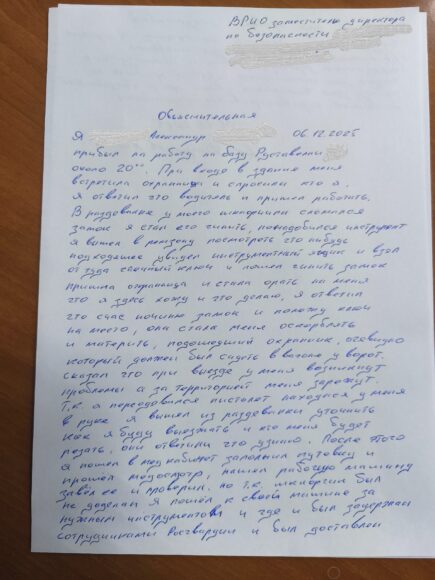 ВРИО заместитель директора
по безопасности
Объяснительная
Я Александр 06.12.2025
прибыл на работу на базу Руставели
около 20⁰⁰. При входе в здание меня
встретила охранница и спросила кто я,
я ответил что водитель и пришел работать.
В раздевалке у моего шкафчика сломался
замок я стал его чинить, понадобился инструмент
я вышел в ремзону посмотреть что нибудь
подходящее увидел инструментальный ящик и взял
оттуда гаечный ключ и пошел чинить замок
пришла охранница и стала орать на меня
что я здесь хожу и что делаю, я ответил
что счас починю замок и положу ключ
на место, она стала меня оскорблять
и материть, подошедший охранник, очевидно
который должен был сидеть в вагоне у ворот.
сказал что при выезде у меня возникнут
проблемы а за территорией меня зарежут.
Т.к. я переодевался пистолет находился у меня
в руке я вышел из раздевалки уточнить
как я буду выезжать и кто меня будет
резать, они ответили что узнаю. После того
я пошел в медкабинет заполнил путовку и
прошел медосмотр, нашел рабочую машину
завёл ее и проверил, но т.к. шкафчик был
не доделан я пошёл к своей машине за
нужным инструментом и где и был задержан
сотрудниками Росгвардии и был доставлен